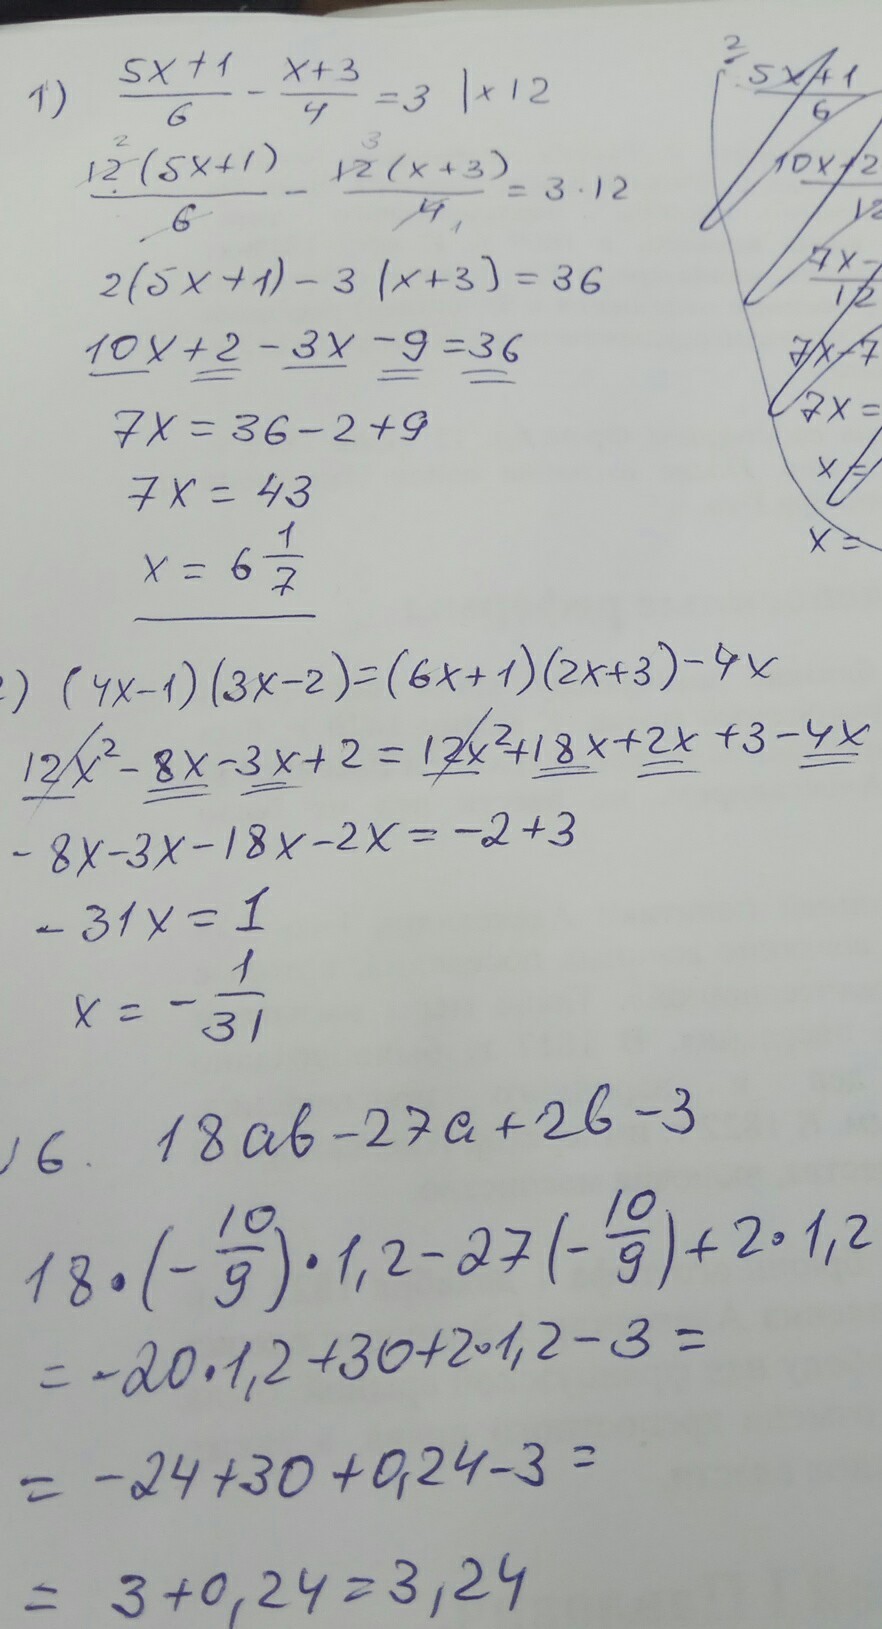 1) (5x+1)/6 - (x+3)/4 = 3 |×12
2 3
12(5x+1)/6 - 12(x+3)/4 = 3·12
1
2(5x+1)-3(x+3)=36
10x+2-3x-9=36
7x=36-2+9
7x=43
x=6 1/7
2) (4x-1)(3x-2)=(6x+1)(2x+3)-4x
12x²-8x-3x+2=12x²+18x+2x+3-4x
-8x-3x-18x-2x=-2+3
-31x=1
x=-1/31
6. 18ab-27a+2b-3
18·(-10/9)·1,2-27(-10/9)+2·1,2
=-20·1,2+30+2·1,2-3=
=-24+30+0,24-3=
=3+0,24=3,24
2
5x+1/6
10x+2/12
7x-/12
7x-7
7x=
x=
x=